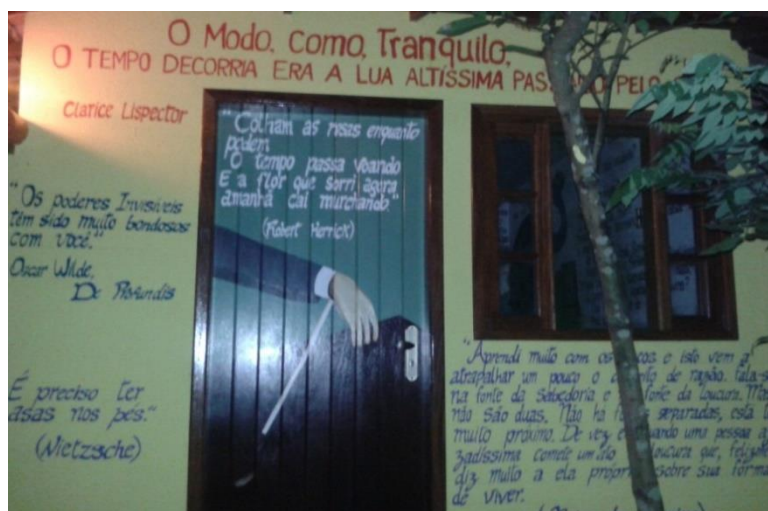 O Modo, Como, Tranquilo,
O TEMPO DECORRIA ERA A LUA ALTÍSSIMA PELO
Clarice Lispector
"Colham as rosas enquanto
podem
O tempo passa voando
E a flor que sorri agora
amanhã cai murchando."
(Robert Herrick)
"Os poderes Invisíveis
têm sido muito bondosos
com você."
Oscar Wilde,
De Profundis
É preciso ter
asas nos pés."
(Nietzsche)
"Aprendi muito com os e isto vem a
atrapalhar um pouco o de razão. fala-s
na fonte da sabedoria e fonte da loucura. Mas
não são duas. Não há separadas, está t
muito proximo. De vez uma pessoa a
zadíssima comete um ato loucura que,
diz muito a ela sobre sua forma
de viver.